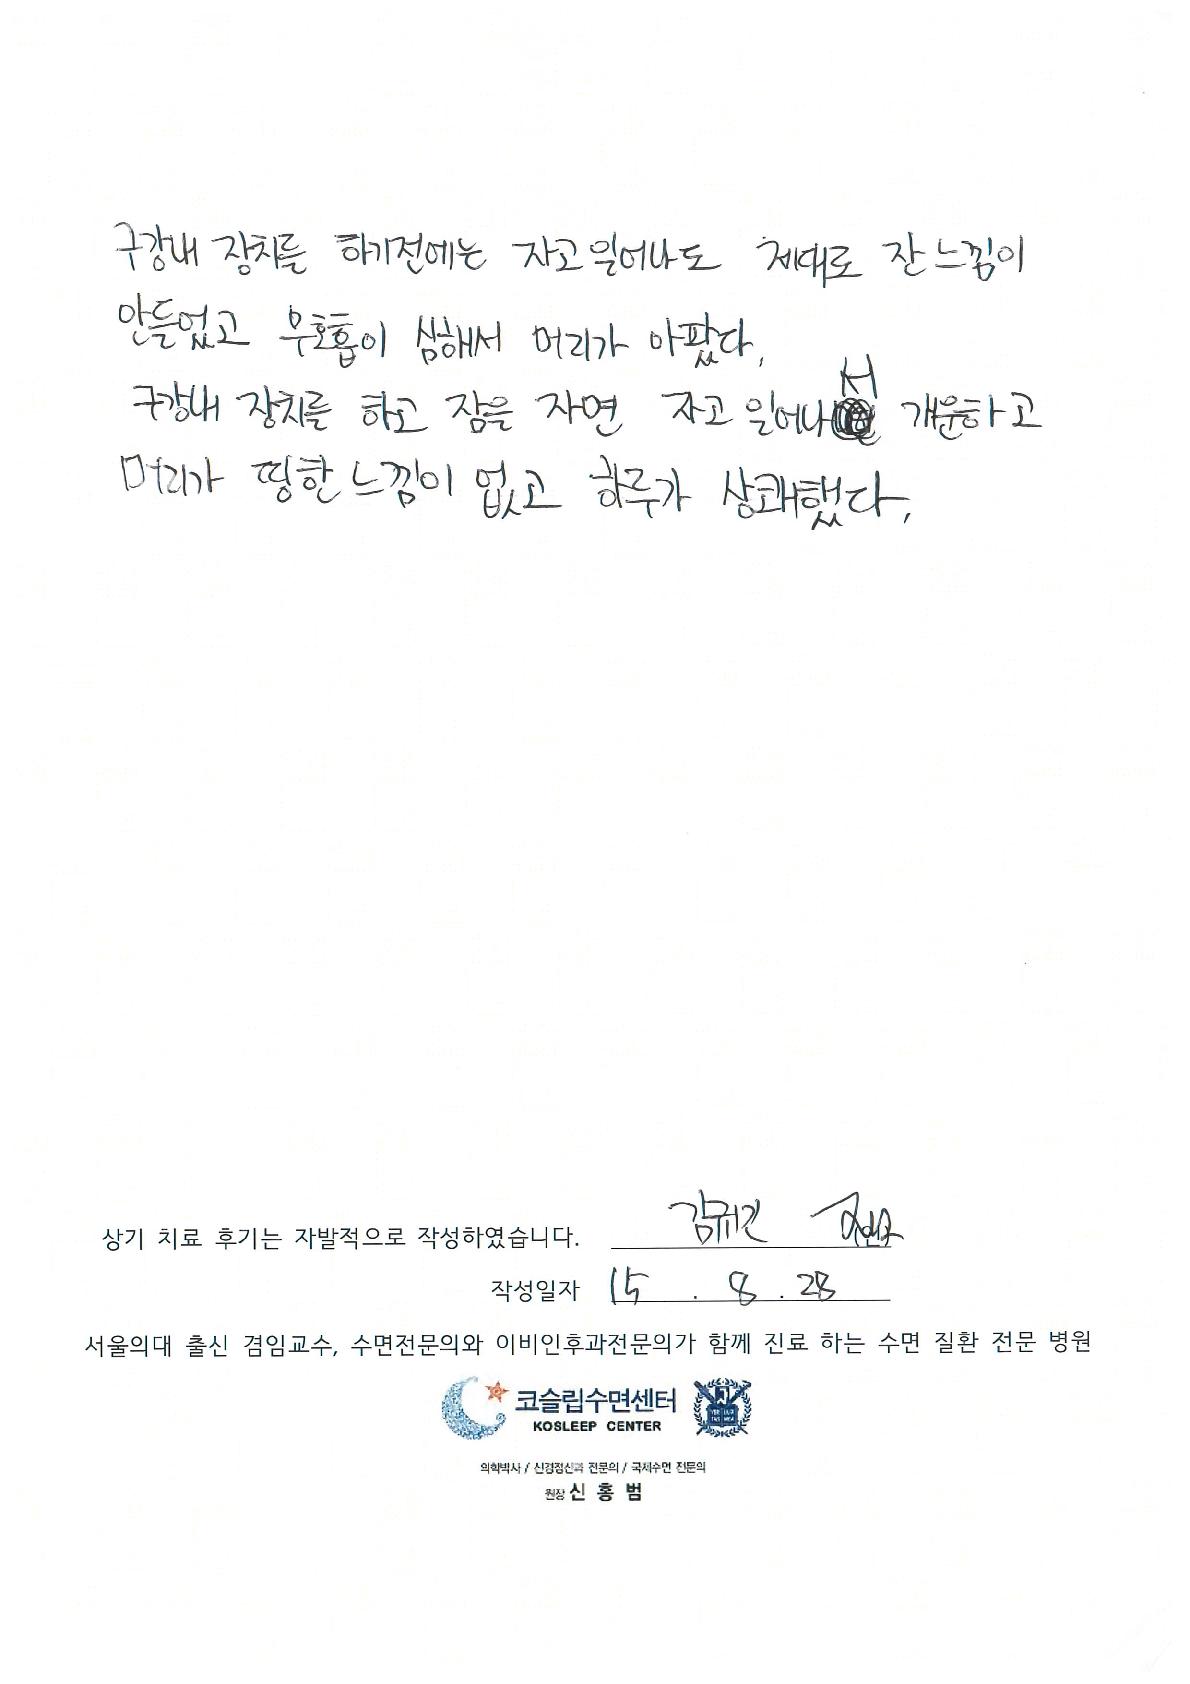 구강내 장치를 하기전에는 자고 일어나도 제대로 잔 느낌이
안들었고 무호흡이 심해서 머리가 아팠다.
구강내 장치를 하고 잠을 자면 자고 일어나서 개운하고
머리가 띵한 느낌이 없고 하루가 상쾌했다.
상기 치료 후기는 자발적으로 작성하였습니다. 김규진
작성일자 15 . 8 . 28
서울의대 출신 겸임교수, 수면전문의와 이비인후과전문의가 함께 진료 하는 수면 질환 전문 병원
코슬립수면센터
KOSLEEP CENTER
의학박사 / 신경정신과 전문의 / 국제수면 전문의
원장 신 홍 범